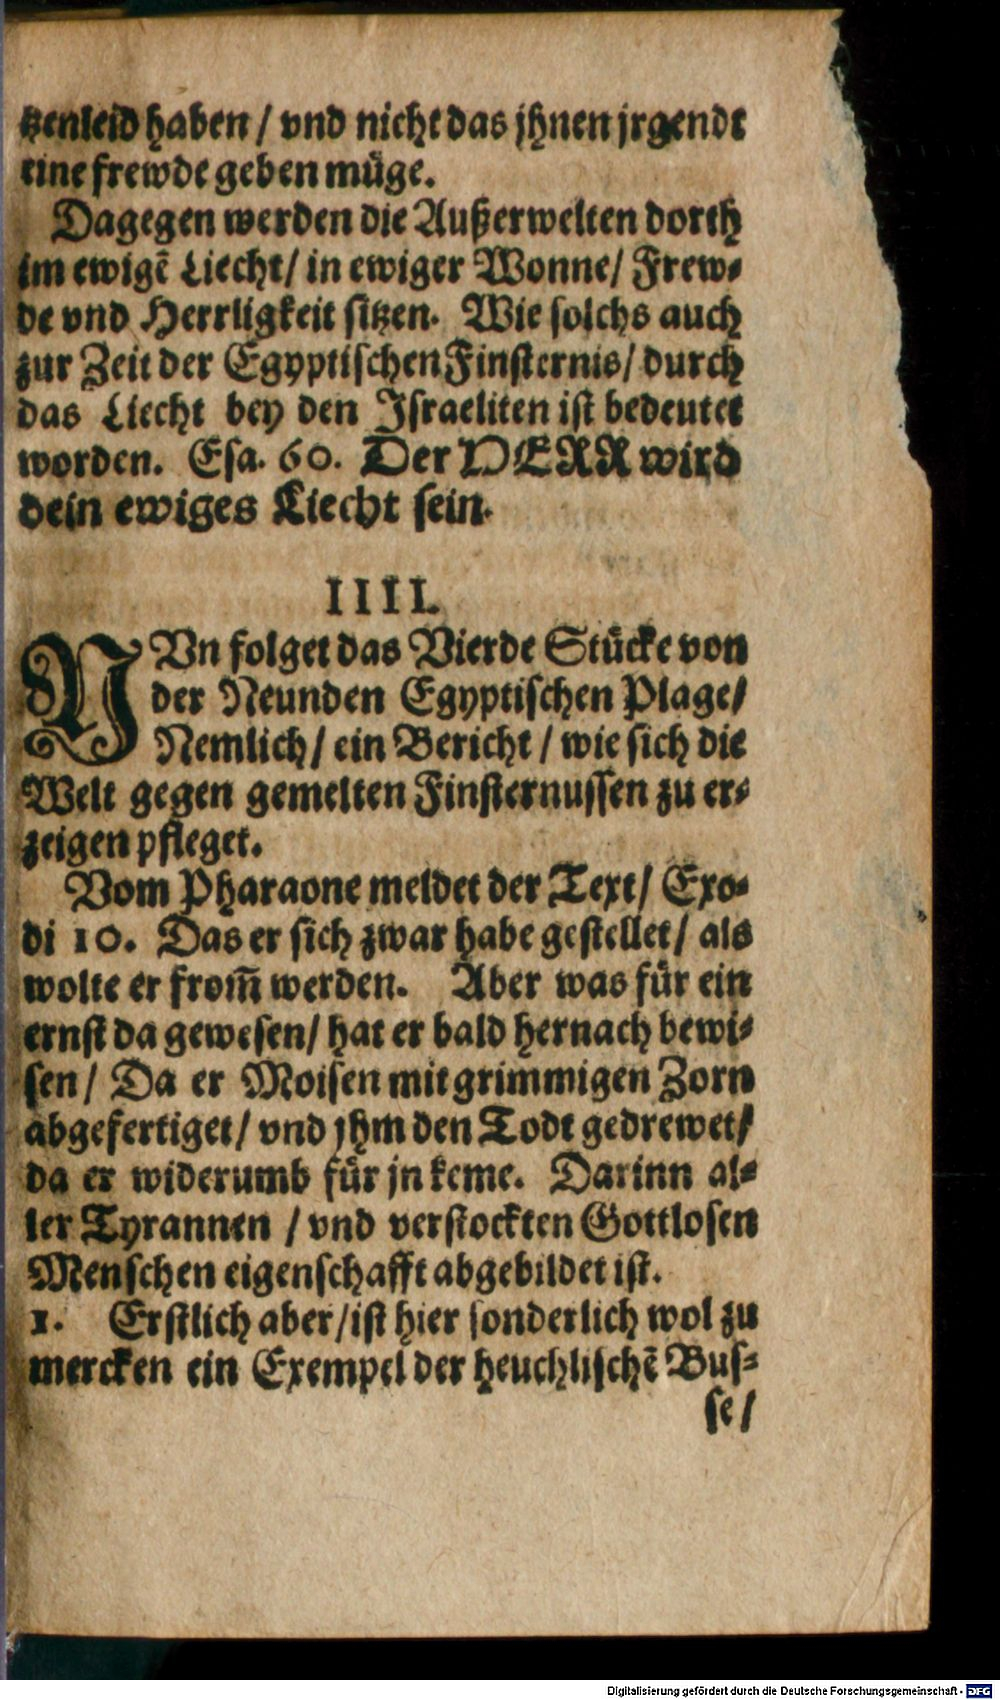 tzenleid haben / vnd nicht das jhnen jrgendt
eine frewde geben müge.
Dagegen werden die Außerwelten dorth
im ewigē Liecht / in ewiger Wonne / Frew-
de vnd Herrligkeit sitzen. Wie solchs auch
zur Zeit der Egyptischen Finsternis / durch
das Liecht bey den Israeliten ist bedeutet
worden. Esa. 60. Der HERR wird
dein ewiges Liecht sein.
IIII.
NVn folget das Vierde Stücke von
der Neunden Egyptischen Plage /
Nemlich / ein Bericht / wie sich die
Welt gegen gemelten Finsternussen zu er-
zeigen pfleget.
Vom Pharaone meldet der Text / Exo-
di 10. Das er sich zwar habe gestellet / als
wolte er from̄ werden. Aber was für ein
ernst da gewesen / hat er bald hernach bewi-
sen / Da er Moisen mit grimmigen Zorn
abgefertiget / vnd jhm den Todt gedrewet /
da er widerumb für jn keme. Darinn al-
ler Tyrannen / vnd verstockten Gottlosen
Menschen eigenschafft abgebildet ist.
1. Erstlich aber / ist hier sonderlich wol zu
mercken ein Exempel der heuchlischē Bus-
se /
Digitalisierung gefördert durch die Deutsche Forschungsgemeinschaft - DFG